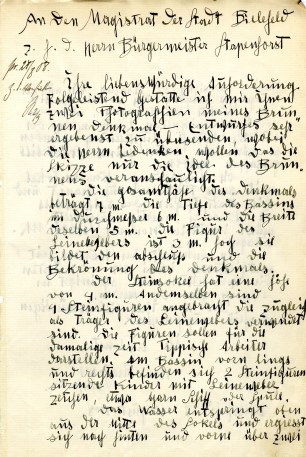 An den Magistrat der Stadt Bielefeld
z. H. d. Herrn Bürgermeister Stapenhorst
Ihre liebenswürdige Auforderung
Folgeleistend gestatte ich mir Ihnen
zwei Fotografien meines Brun-
nen denkmal Entwurfes sehr
ergebenst zu übersenden wobei
die Herrn bedenken wollen das die
Skizze nur die Idee des Brun-
nens veranschaulicht.
Die gesamthöhe des denkmals
beträgt 7 m. die Tiefe des Bassins
im durchmesser 6 m. und die Breite
desselben 5 m. die Figur des
Leinewebers ist 3 m. hoch sie
bildet den abschluss und die
Bekrönung des denkmals
der Steinsockel hat eine höhe
von 4 m. Andemselben sind
4 Steinfiguren angebracht die zugleich
als Träger des Leinewebers
sind. die Figuren sollen für die
damalig zeit Tippische Arbeiter
darstellen. am Bassin vorn lings
und rechts befinden sich 2 Steinfiguren
sitzende Kinder mit Leineweber
zeichen, etwa Garn Schif oder Spule.
das Wasser entspringt oben
aus der Mitte des Sockels und ergiesst
sich nach hinten und vorne über zwei